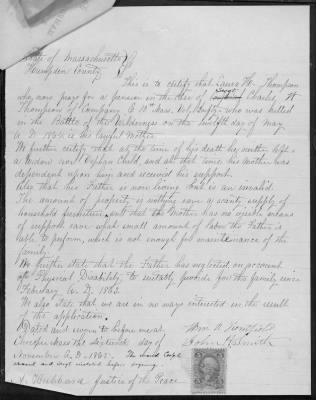 State of Massachusetts
Hampden County
This is to certify that Laura W. Thompson
who now prays for a pension in the Case of Charles W
Thompson of Company E 10th Mass. Vol. who was killed
in the Battle of the Wilderness on the day of May
A. D. 1864, is his lawful Mother.
We further certify that at the time of his death he neither left a
Widow nor Orphan Child, and at that time his Mother was
dependent upon him and received his support.
Also that his Father is now living but is an invalid.
The amount of property is nothing save a scanty supply of
household furniture and that the Mother has no certain means
of support save what small amount of labor the Father is
able to perform, which is not enough for maintenance of the
family.
We further state that the Father has neglected on account
of Physical Disability to suitably provide for the family since
February A. D. 1863.
We also state that we are in no ways interested in the result
of the application.
Dated and sworn to before me at
Chicopee Mass the sixteenth day of
November A. D. 1865. The words
and inserted before signing
Hubbard Justice of the Peace
Wm A
John